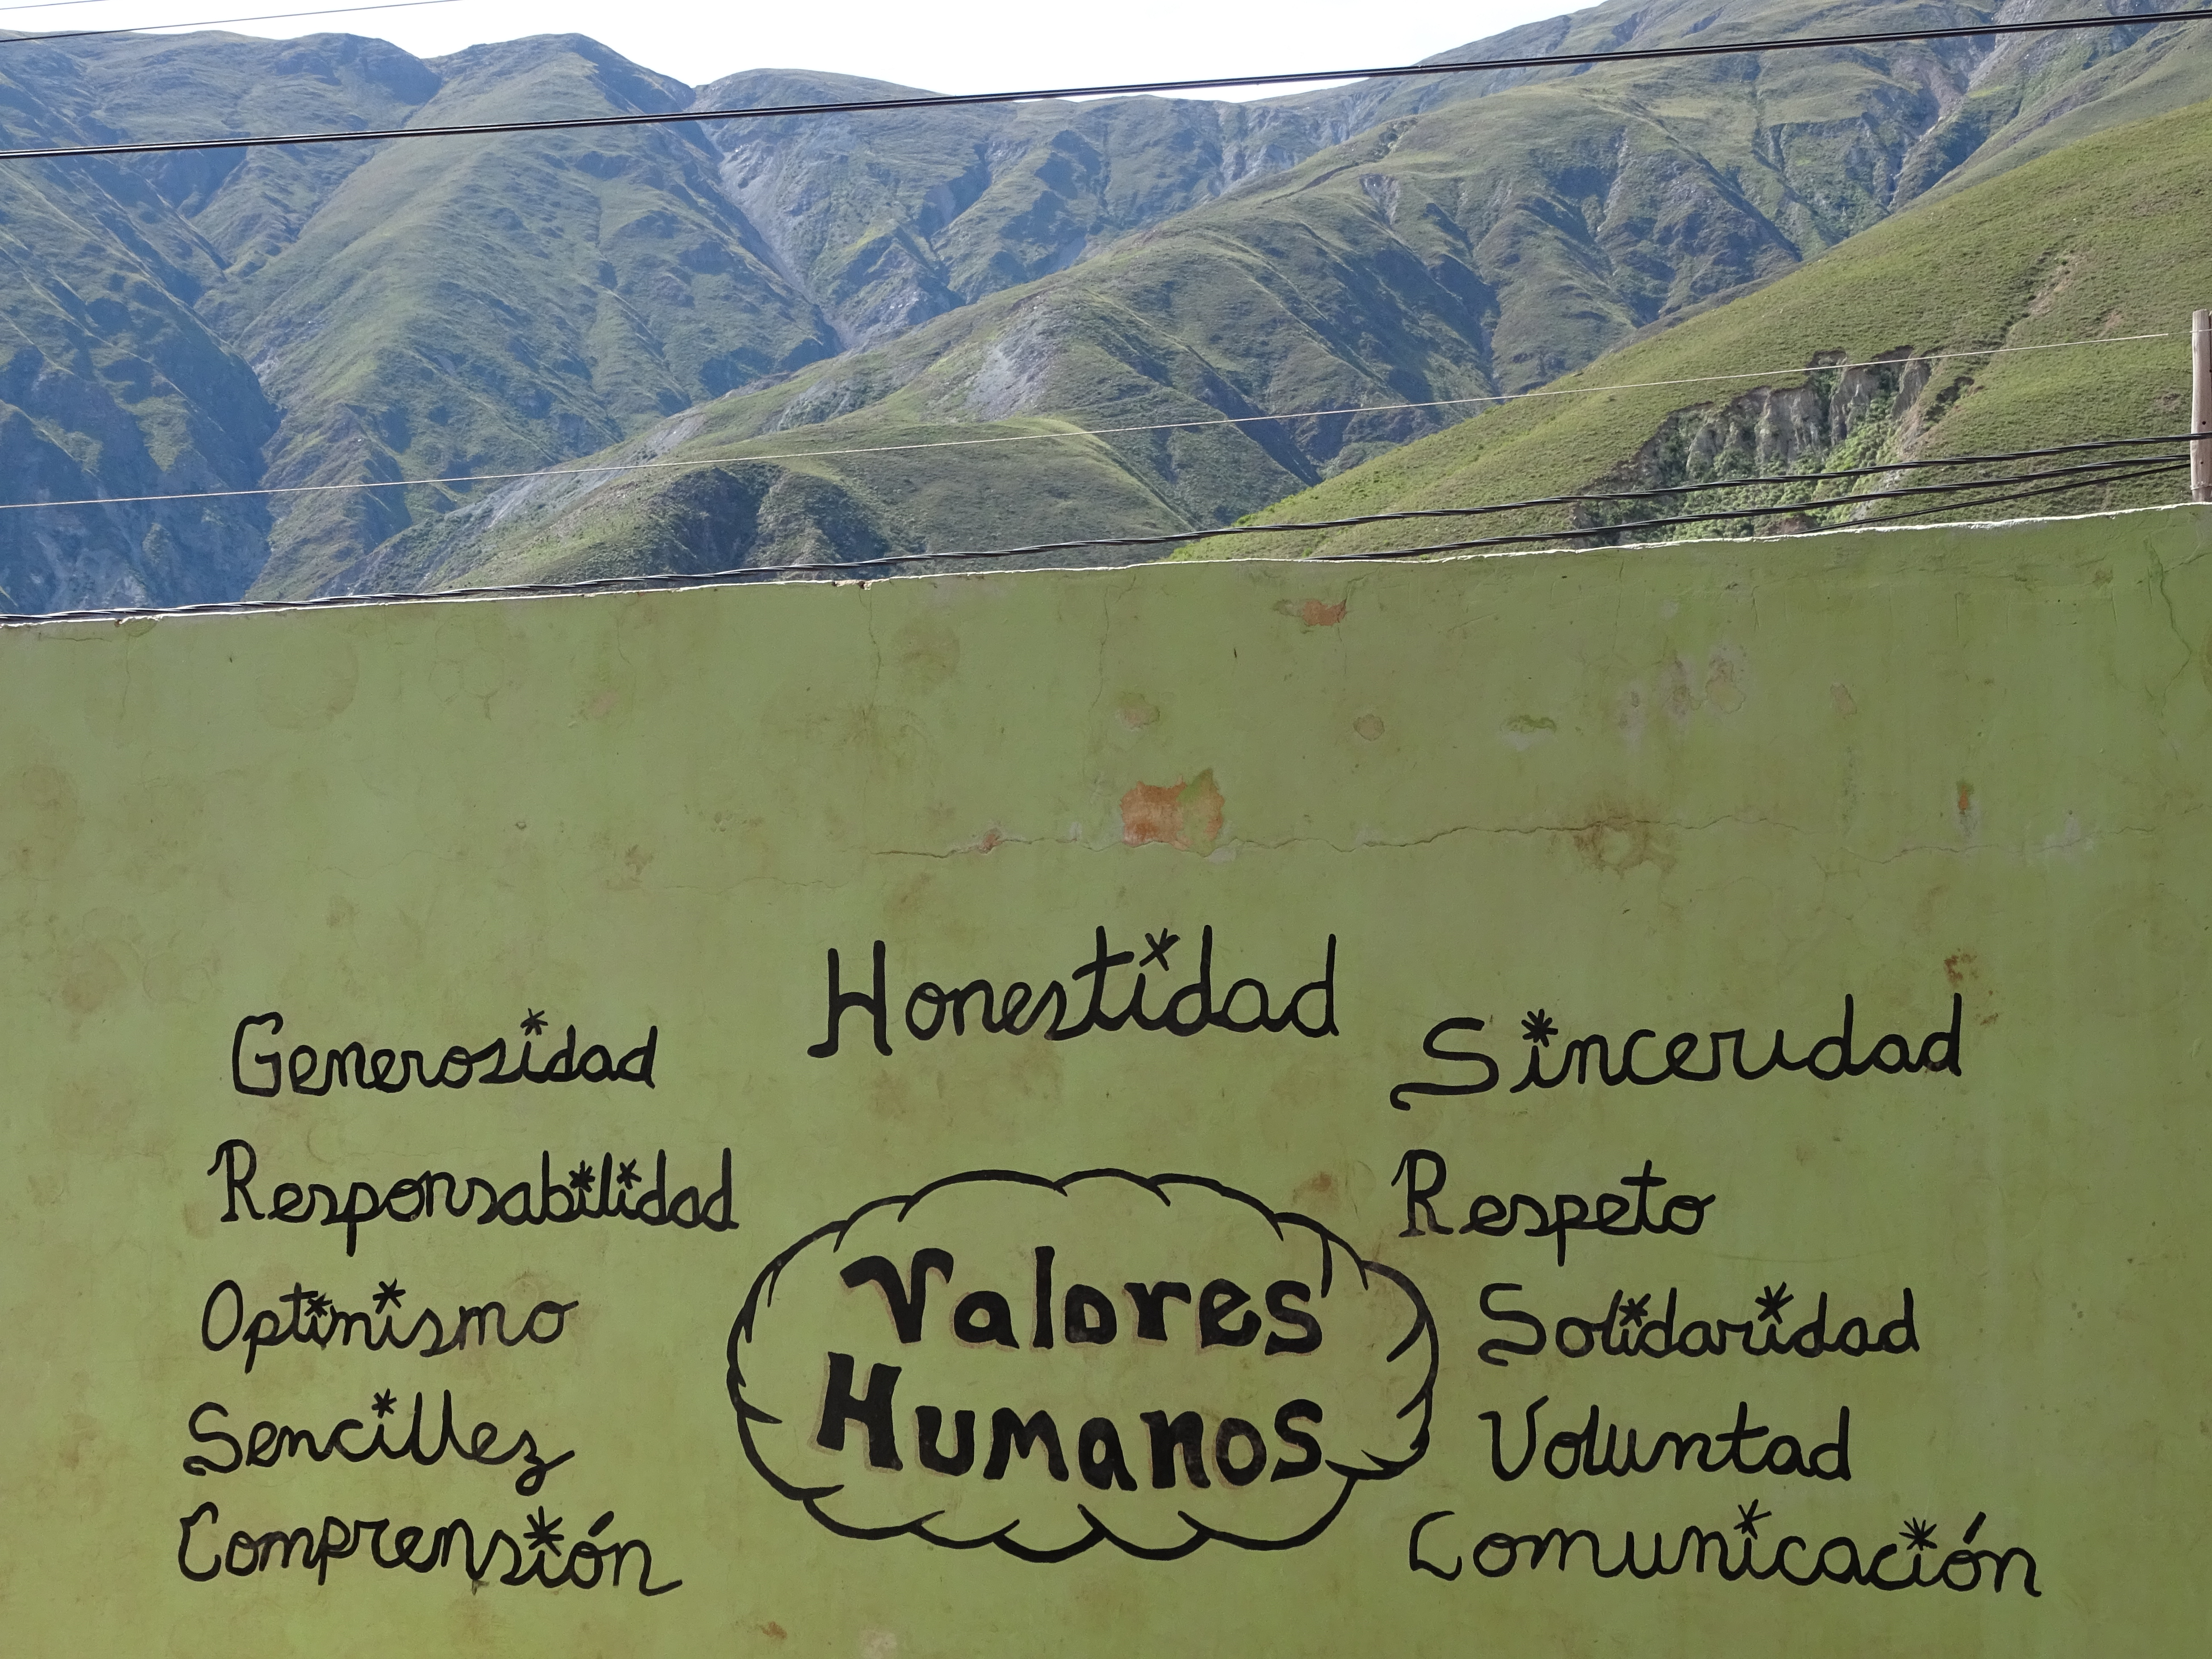 Honestidad
Generosidad
Responsabilidad
Optimismo
Sencillez
Comprensión
Valores
Humanos
Sinceridad
Respeto
Solidaridad
Voluntad
Comunicación